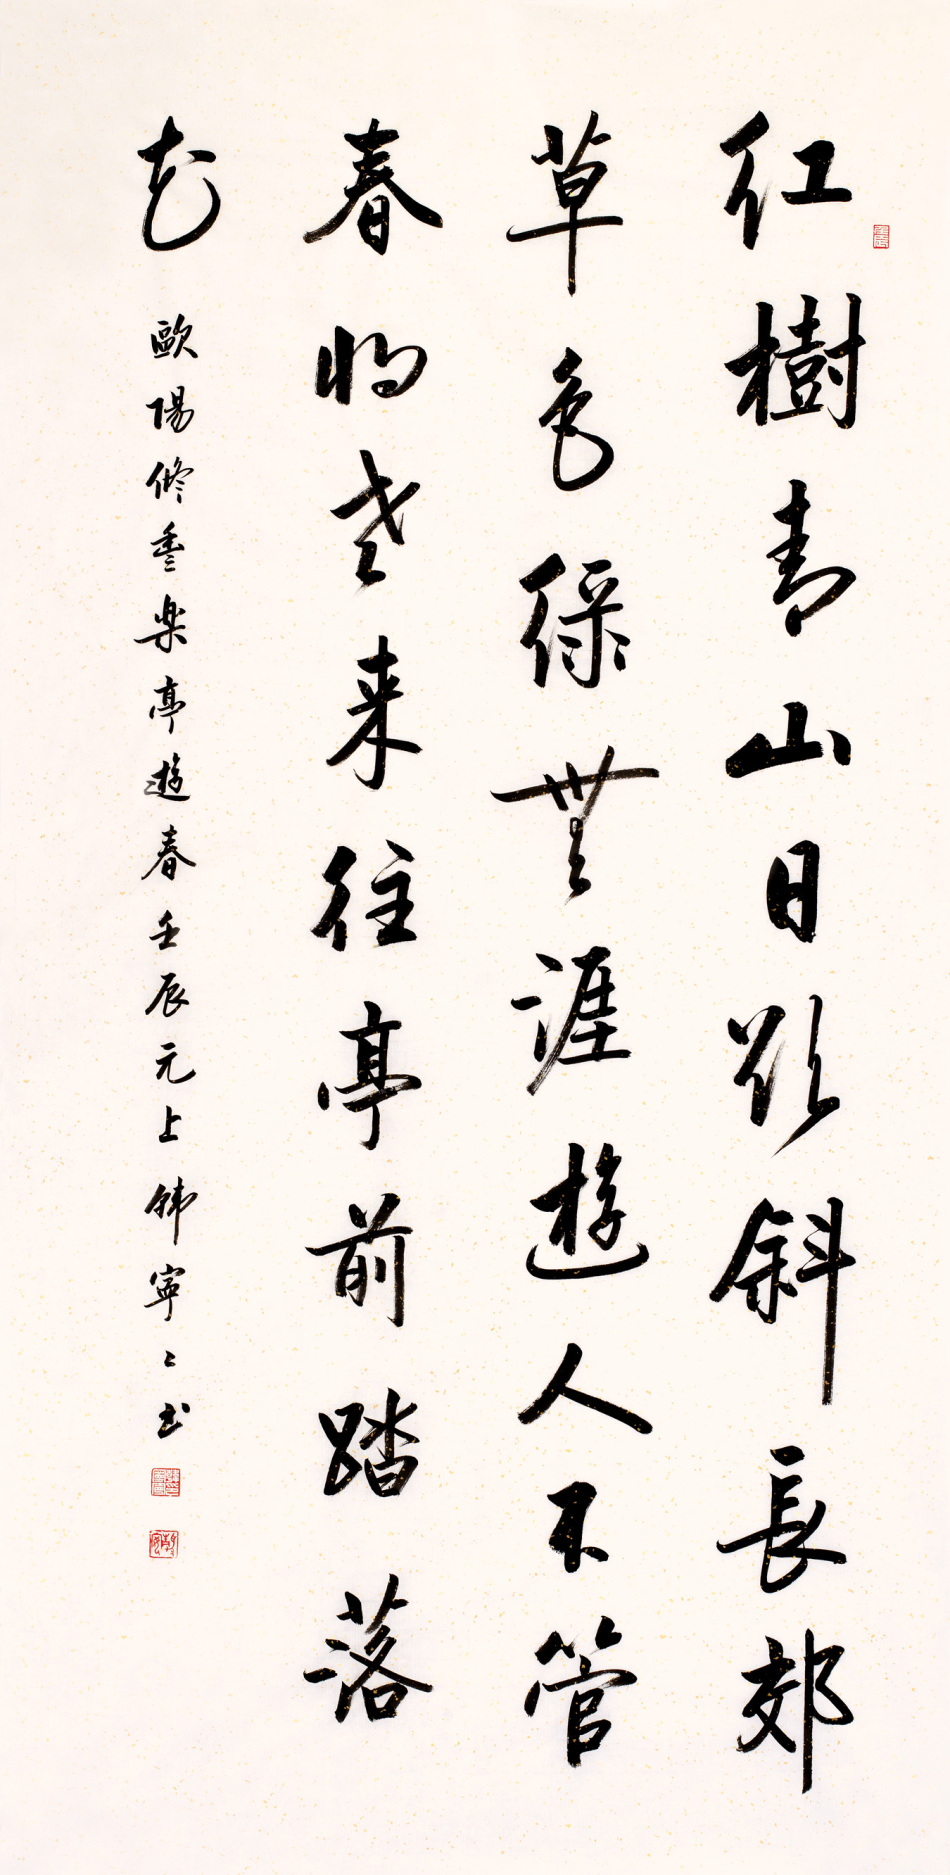 紅樹青山日欲斜長郊
草色綠無涯遊人不管
春将老来往亭前踏落
花
歐陽修豐楽亭遊春壬辰元上韓寧々书